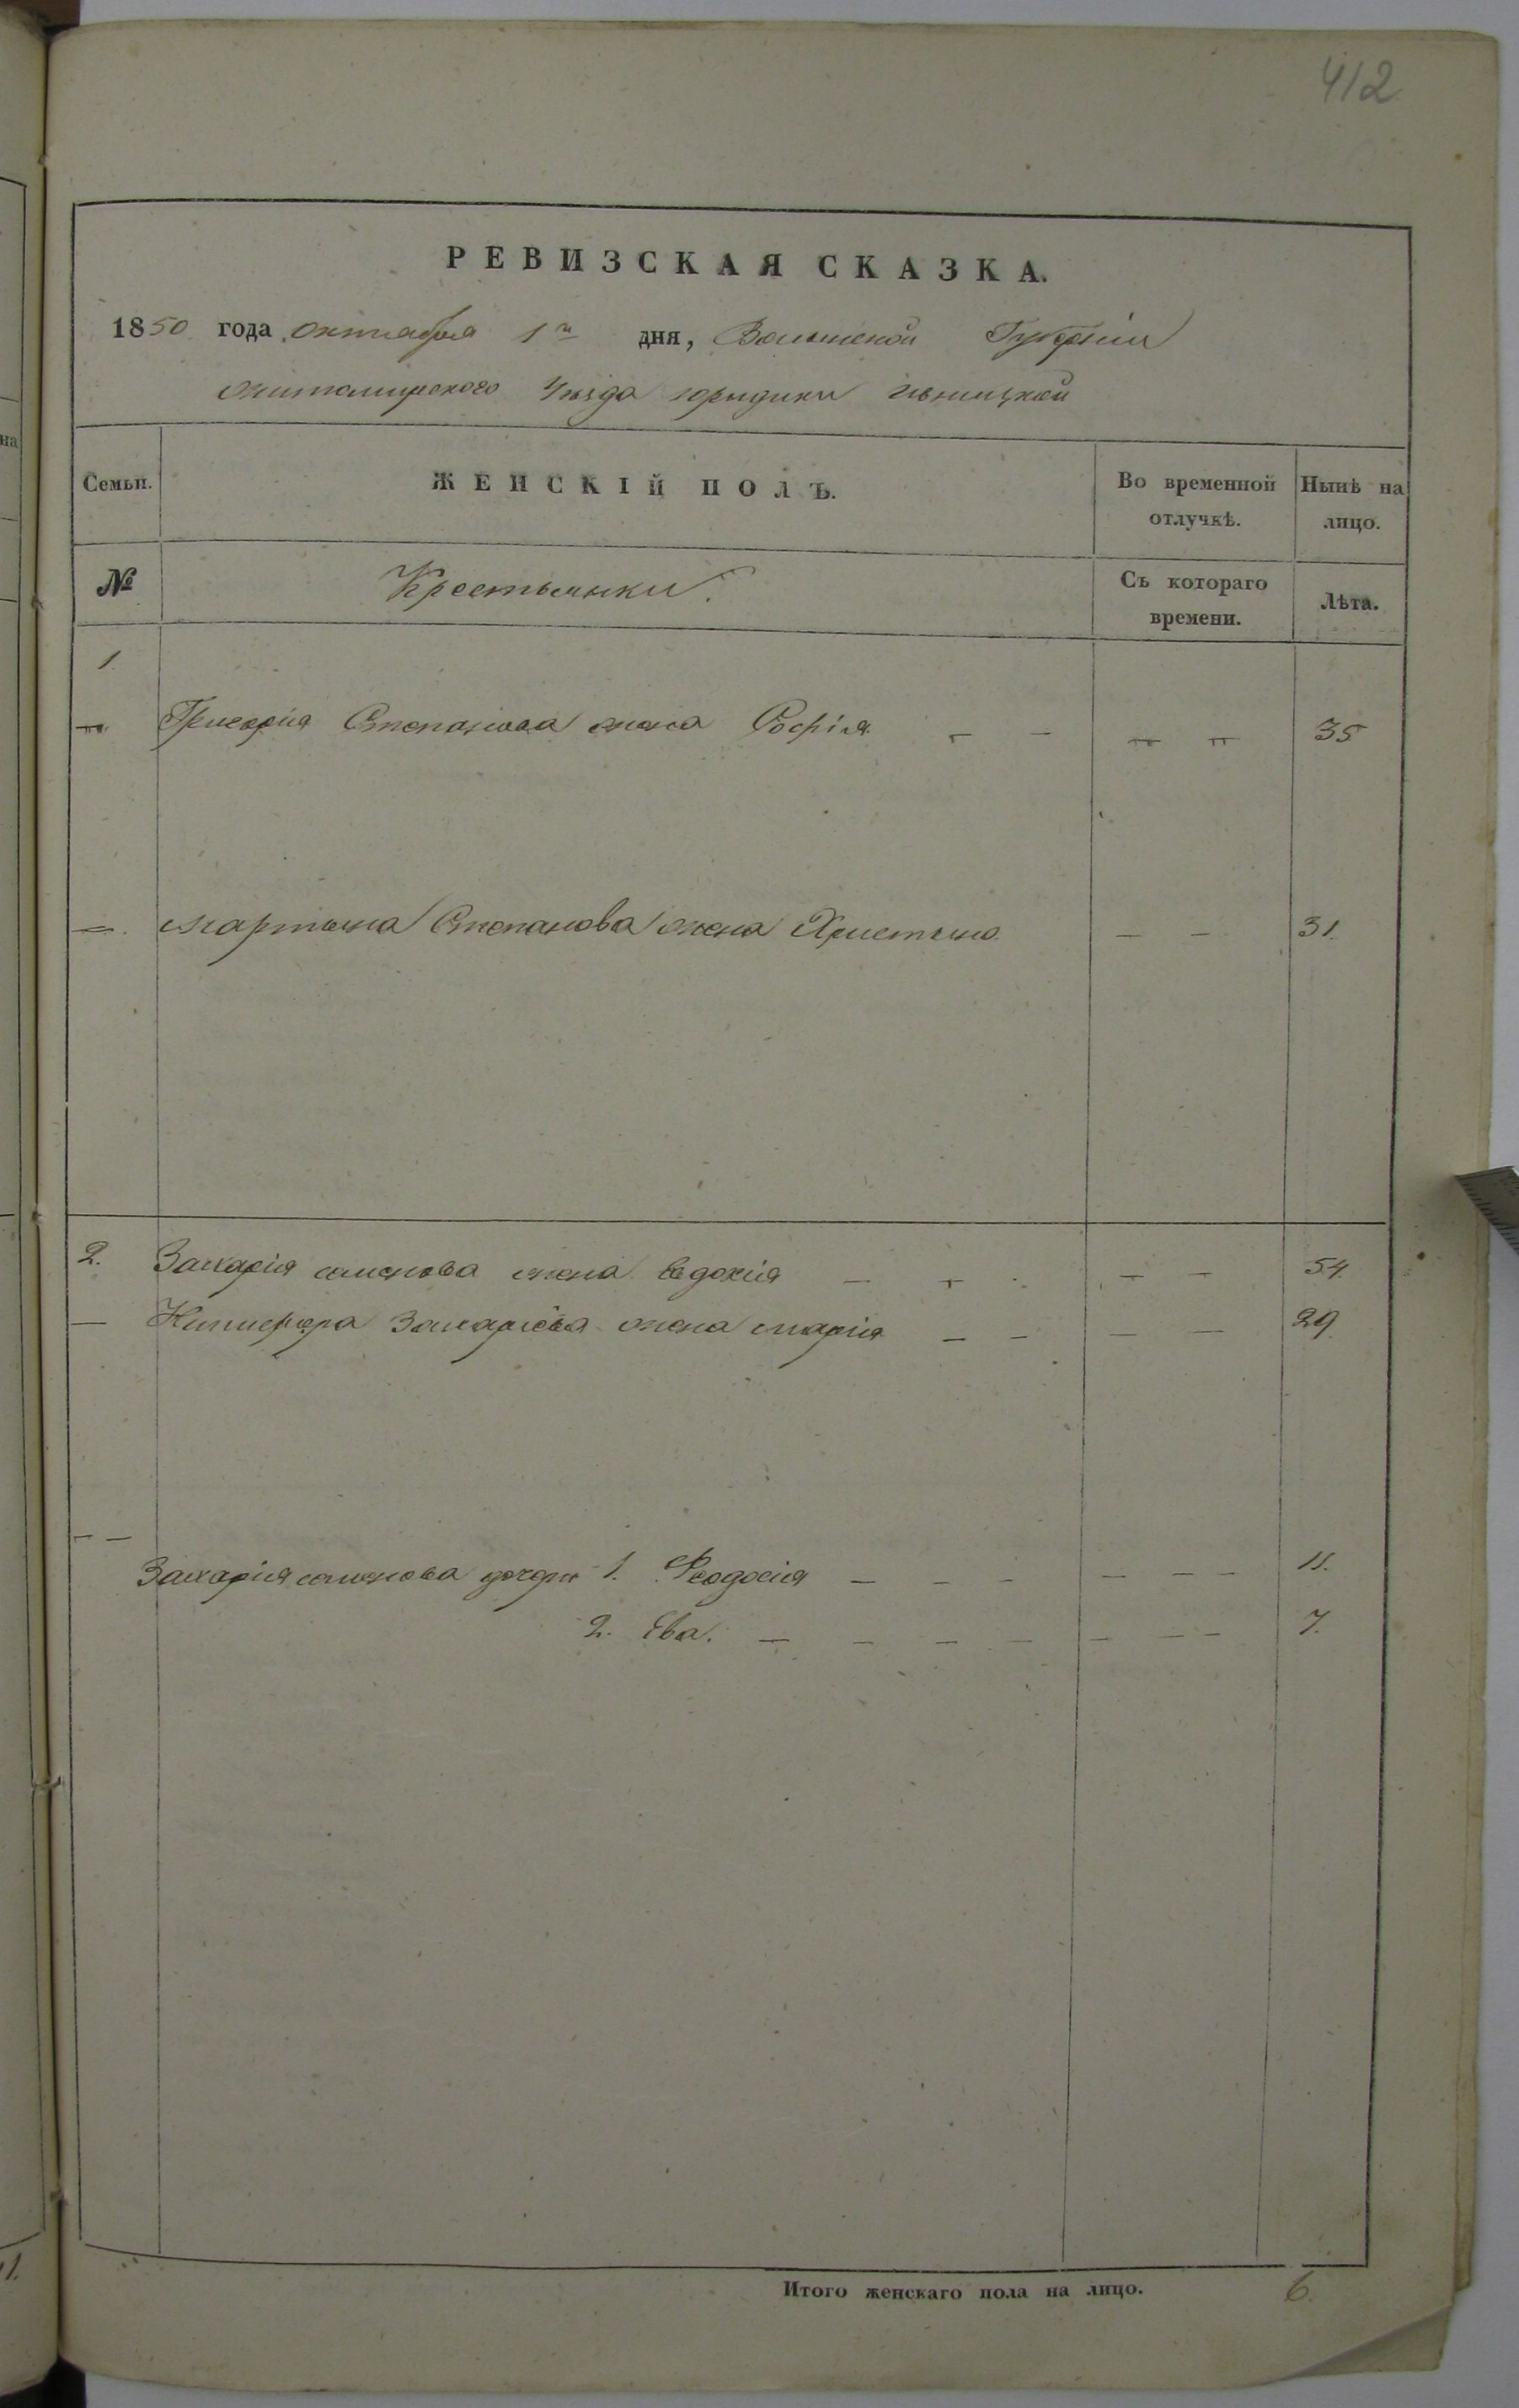 412
РЕВИЗСКАЯ СКАЗКА.
1850 года октября 1го дня, Волынской Губерніи
житомирского Уезда юридики ивницкой
Семьи. ЖЕНСКІЙ ПОЛЪ. Во временной отлучкѣ. Нынѣ на лицо.
№ Крестьянки. Съ котораго времени. Лѣта.
1
Григорія Степанова жена Софія 35
Мартына Степанова жена Христина 31.
2. Захарія семенова жена Евдокія 54.
Никифора Захаріева жена марія 29
Захарія семенова дочери 1. Феодосія 11.
2. Ева. 7.
Итого женскаго пола на лицо. 6.